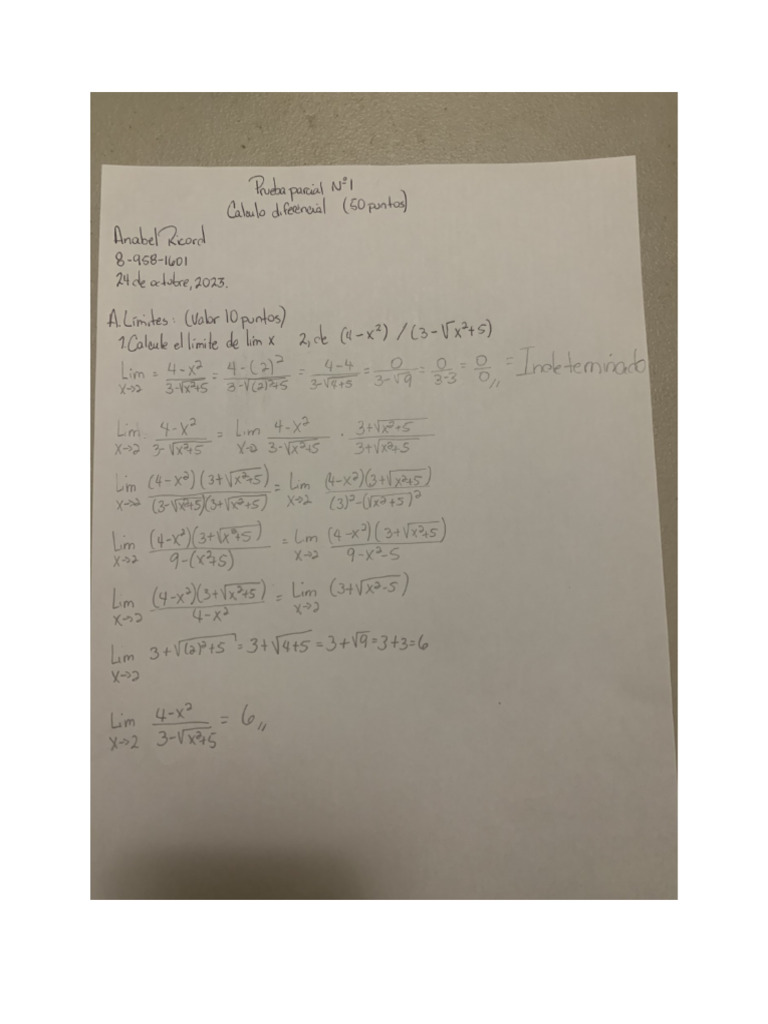 Prueba parcial N°1
Calculo diferencial (50 puntos)
Anabel Ricord
8-958-1601
24 de octubre, 2023.
A. Límites: (Valor 10 puntos)
1. Calcule el límite de lim x 2, de (4-x²) / (3-√x²+5)
Lim x→2 = 4-x² / 3-√x²+5 = 4-(2)² / 3-√(2)²+5 = 4-4 / 3-√4+5 = 0 / 3-√9 = 0 / 3-3 = 0/0,, = Indeterminado
Lim x→2 4-x² / 3-√x²+5 = Lim x→2 4-x² / 3-√x²+5 · 3+√x²+5 / 3+√x²+5
Lim x→2 (4-x²)(3+√x²+5) / (3-√x²+5)(3+√x²+5) = Lim x→2 (4-x²)(3+√x²+5) / (3)²-(√x²+5)²
Lim x→2 (4-x²)(3+√x²+5) / 9-(x²+5) = Lim x→2 (4-x²)(3+√x²+5) / 9-x²-5
Lim x→2 (4-x²)(3+√x²+5) / 4-x² = Lim x→2 (3+√x²-5)
Lim x→2 3+√(2)²+5 = 3+√4+5 = 3+√9 = 3+3 = 6
Lim x→2 4-x² / 3-√x²+5 = 6,,